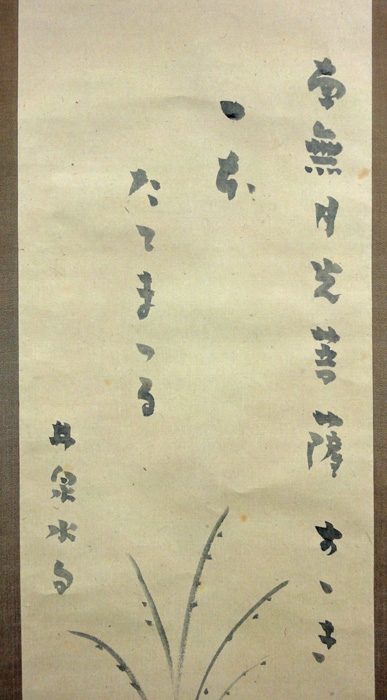 南無月光菩薩すゝき
一本
たてまつる
井泉水